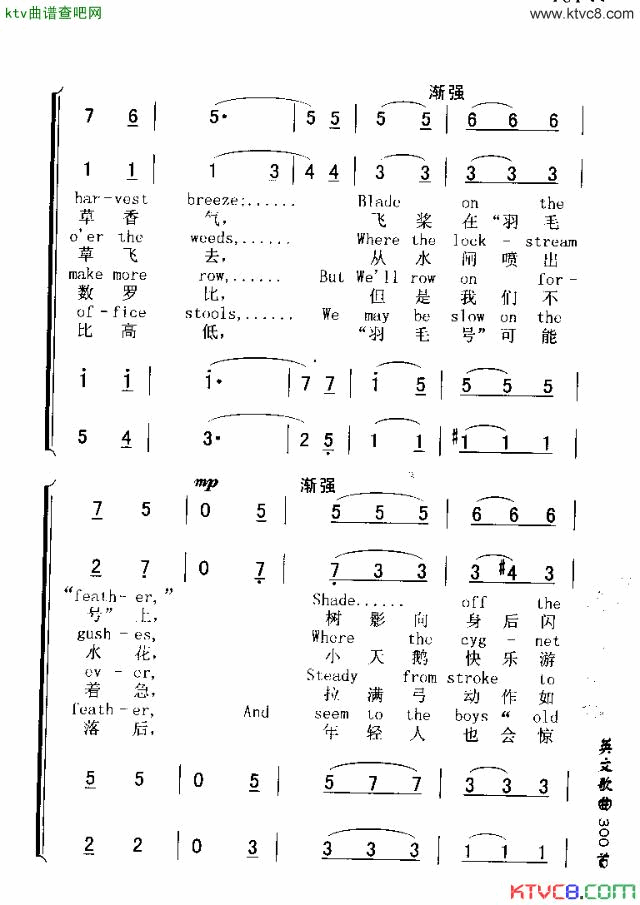 ktv曲谱查吧网
www.ktvc8.com
渐强
7 6 | 5· | 5 5 | 5 5 | 6 6 6 |
1 1 | 1 3 | 4 4 | 3 3 | 3 3 3 |
har-vest breeze:...... Blade on the
草 香 气， 飞 桨 在“羽 毛
o'er the weeds,...... Where the lock - stream
草 飞 去， 从 水 闸 喷 出
make more row,...... But We'll row on for-
数 罗 比， 但 是 我 们 不
of-fice stools,...... We may be slow on the
比 高 低， “羽 毛 号”可 能
i i | i· | 7 7 | i 5 | 5 5 5 |
5 4 | 3· | 2 5 | 1 1 | #1 1 1 |
mp 渐强
7 5 | 0 5 | 5 5 5 | 6 6 6 |
2 7 | 0 7 | 7 3 3 | 3 #4 3 |
"feath-er," Shade...... off the
号”上， 树 影 向 身 后 闪
gush-es, Where the cyg - net
水 花， 小 天 鹅 快 乐 游
ev - er, Steady from stroke to
着 急， 拉 满 弓 动 作 如
feath-er, And seem to the boys “ old
落 后， 年 轻 人 也 会 惊
5 5 | 0 5 | 5 7 7 | 3 3 3 |
2 2 | 0 3 | 3 3 3 | 1 1 1 |
英文歌曲300首
KTVC8.COM